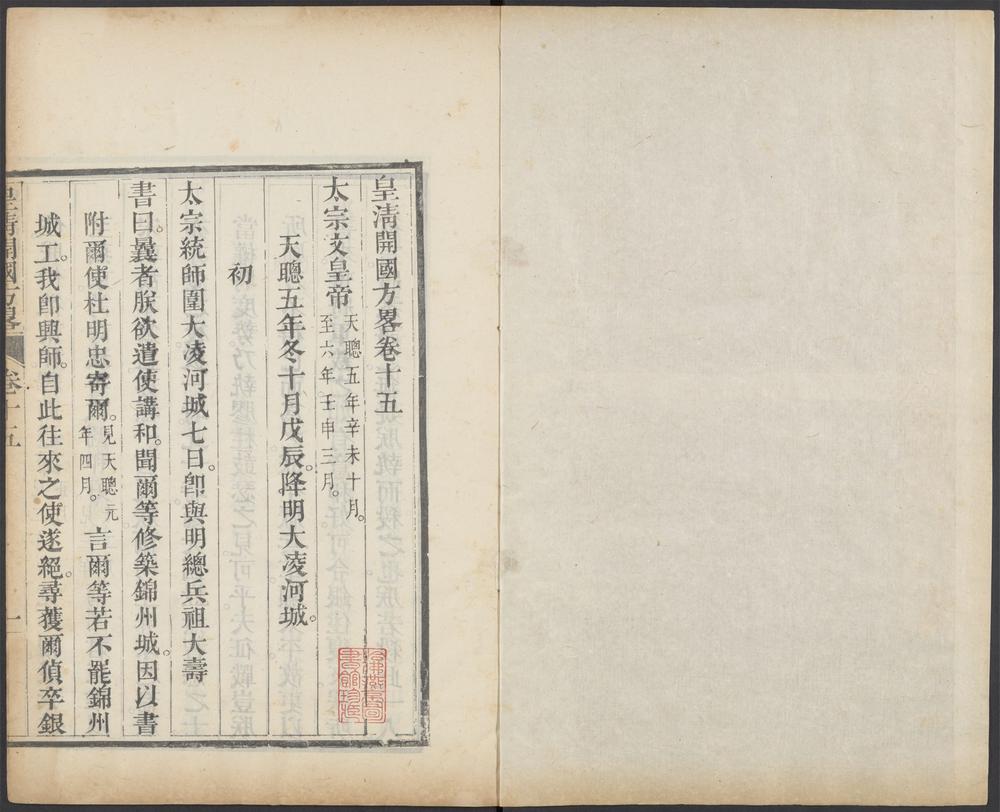 皇淸開國方畧卷十五
太宗文皇帝天聰五年辛未十月。至六年壬申三月。
天聰五年冬十月戊辰。降明大凌河城。
初
太宗統師圍大凌河城七日。卽與明總兵祖大壽
書曰。曩者朕欲遣使講和。聞爾等修築錦州城。因以書
附爾使杜明忠寄爾。見天聰元年四月。言爾等若不罷錦州
城工。我卽興師。自此往來之使遂絕。尋獲爾偵卒銀
皇淸開國方畧 卷十五 一
哈佛燕京圖書館珍藏